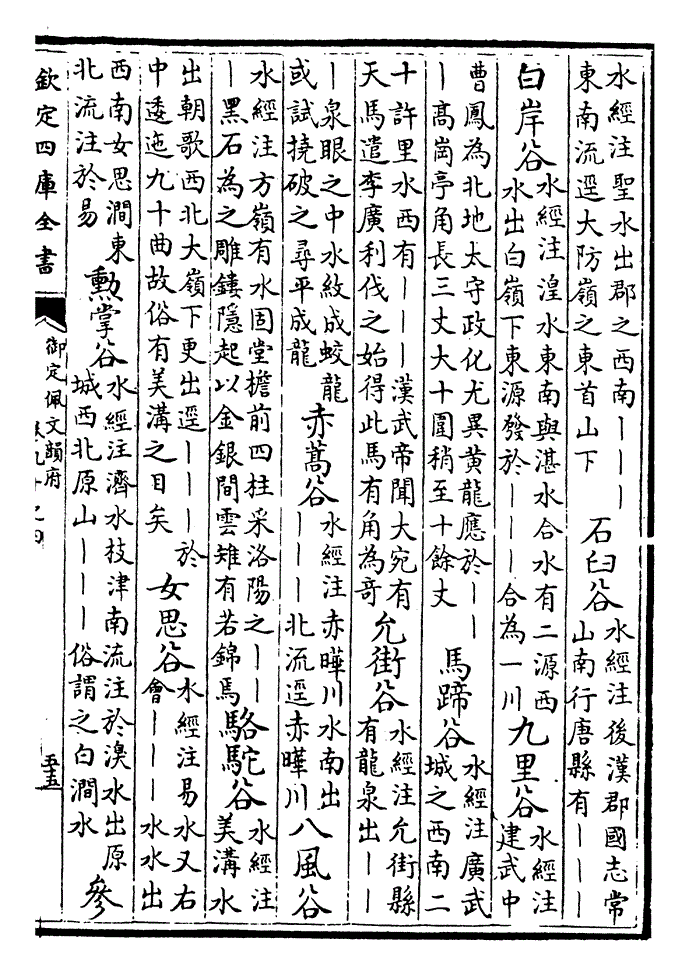 水經注聖水出郡之西南｜｜｜
東南流逕大防嶺之東首山下
石臼谷
水經注後漢郡國志常
山南行唐縣有｜｜｜
白岸谷
水經注湟水東南與湛水合水有二源西
水出白嶺下東源發於｜｜｜合為一川
九里谷
水經注
建武中
曹鳳為北地太守政化尤異黄龍應於｜｜
｜高崗亭角長三丈大十圍稍至十餘丈
馬蹄谷
水經注廣武
城之西南二
十許里水西有｜｜｜漢武帝聞大宛有
天馬遣李廣利伐之始得此馬有角為奇
允街谷
水經注允街縣
有龍泉出｜｜
｜泉眼之中水紋成蛟龍
或試撓破之尋平成龍
赤蒿谷
水經注赤曄川水南出
｜｜｜北流逕赤曄川
八風谷
水經注方嶺有水固堂擔前四柱采洛陽之｜｜
｜黑石為之雕鏤隱起以金銀間雲雉有若錦馬
駱駝谷
水經注
美溝水
出朝歌西北大嶺下更出逕｜｜｜於
中逶迤九十曲故俗有美溝之目矣
女思谷
水經注易水又右
會｜｜｜水水出
西南女思澗東
北流注於易
勲掌谷
水經注濟水枝津南流注於湨水出原
城西北原山｜｜｜俗謂之白澗水
參
欽定四庫全書
御定佩文韻府
五五